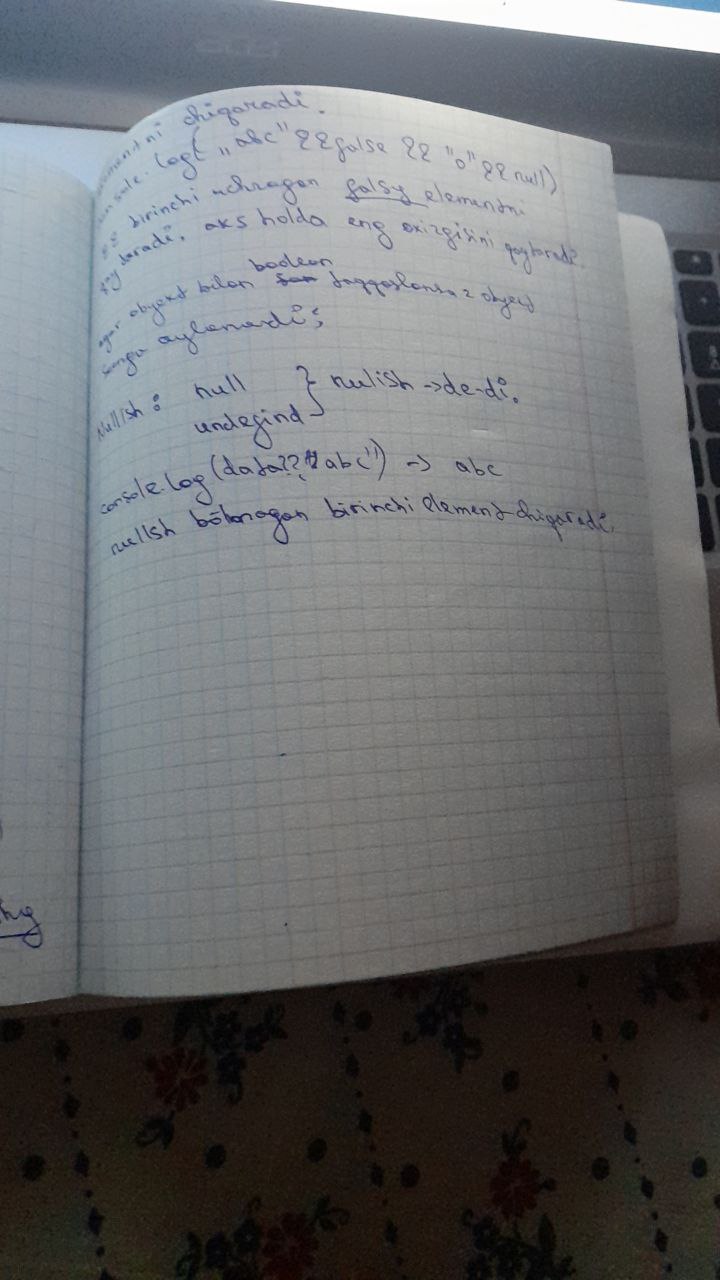 chiqaradi.
console.log( „abc" && false && "0" && null)
&& birinchi uchragan falsy elementni
qaytaradi, aks holda eng oxirgisini qaytaradi.
boolean
agar obyekt bilan taqqoslansa = obyekt
songa aylanadi;
Nullish : null } nulish -> de-di.
undefind
console.log (data ?? "abc") -> abc
nullsh bölmagan birinchi element chiqaradi.